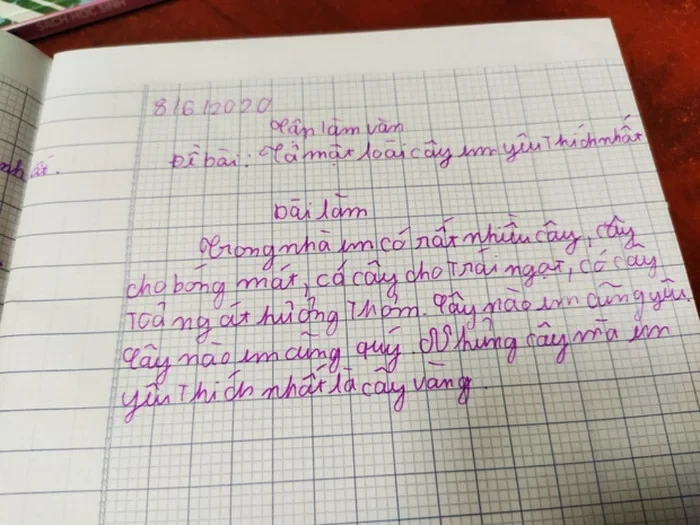 8/6/2020
Tập làm văn
Đề bài: Tả một loài cây em yêu thích nhất
Bài làm
Trong nhà em có rất nhiều cây, cây
cho bóng mát, có cây cho trái ngọt, có cây
toả ngát hương thơm. Cây nào em cũng yêu.
Cây nào em cũng quý. Nhưng cây mà em
yêu thích nhất là cây vàng.